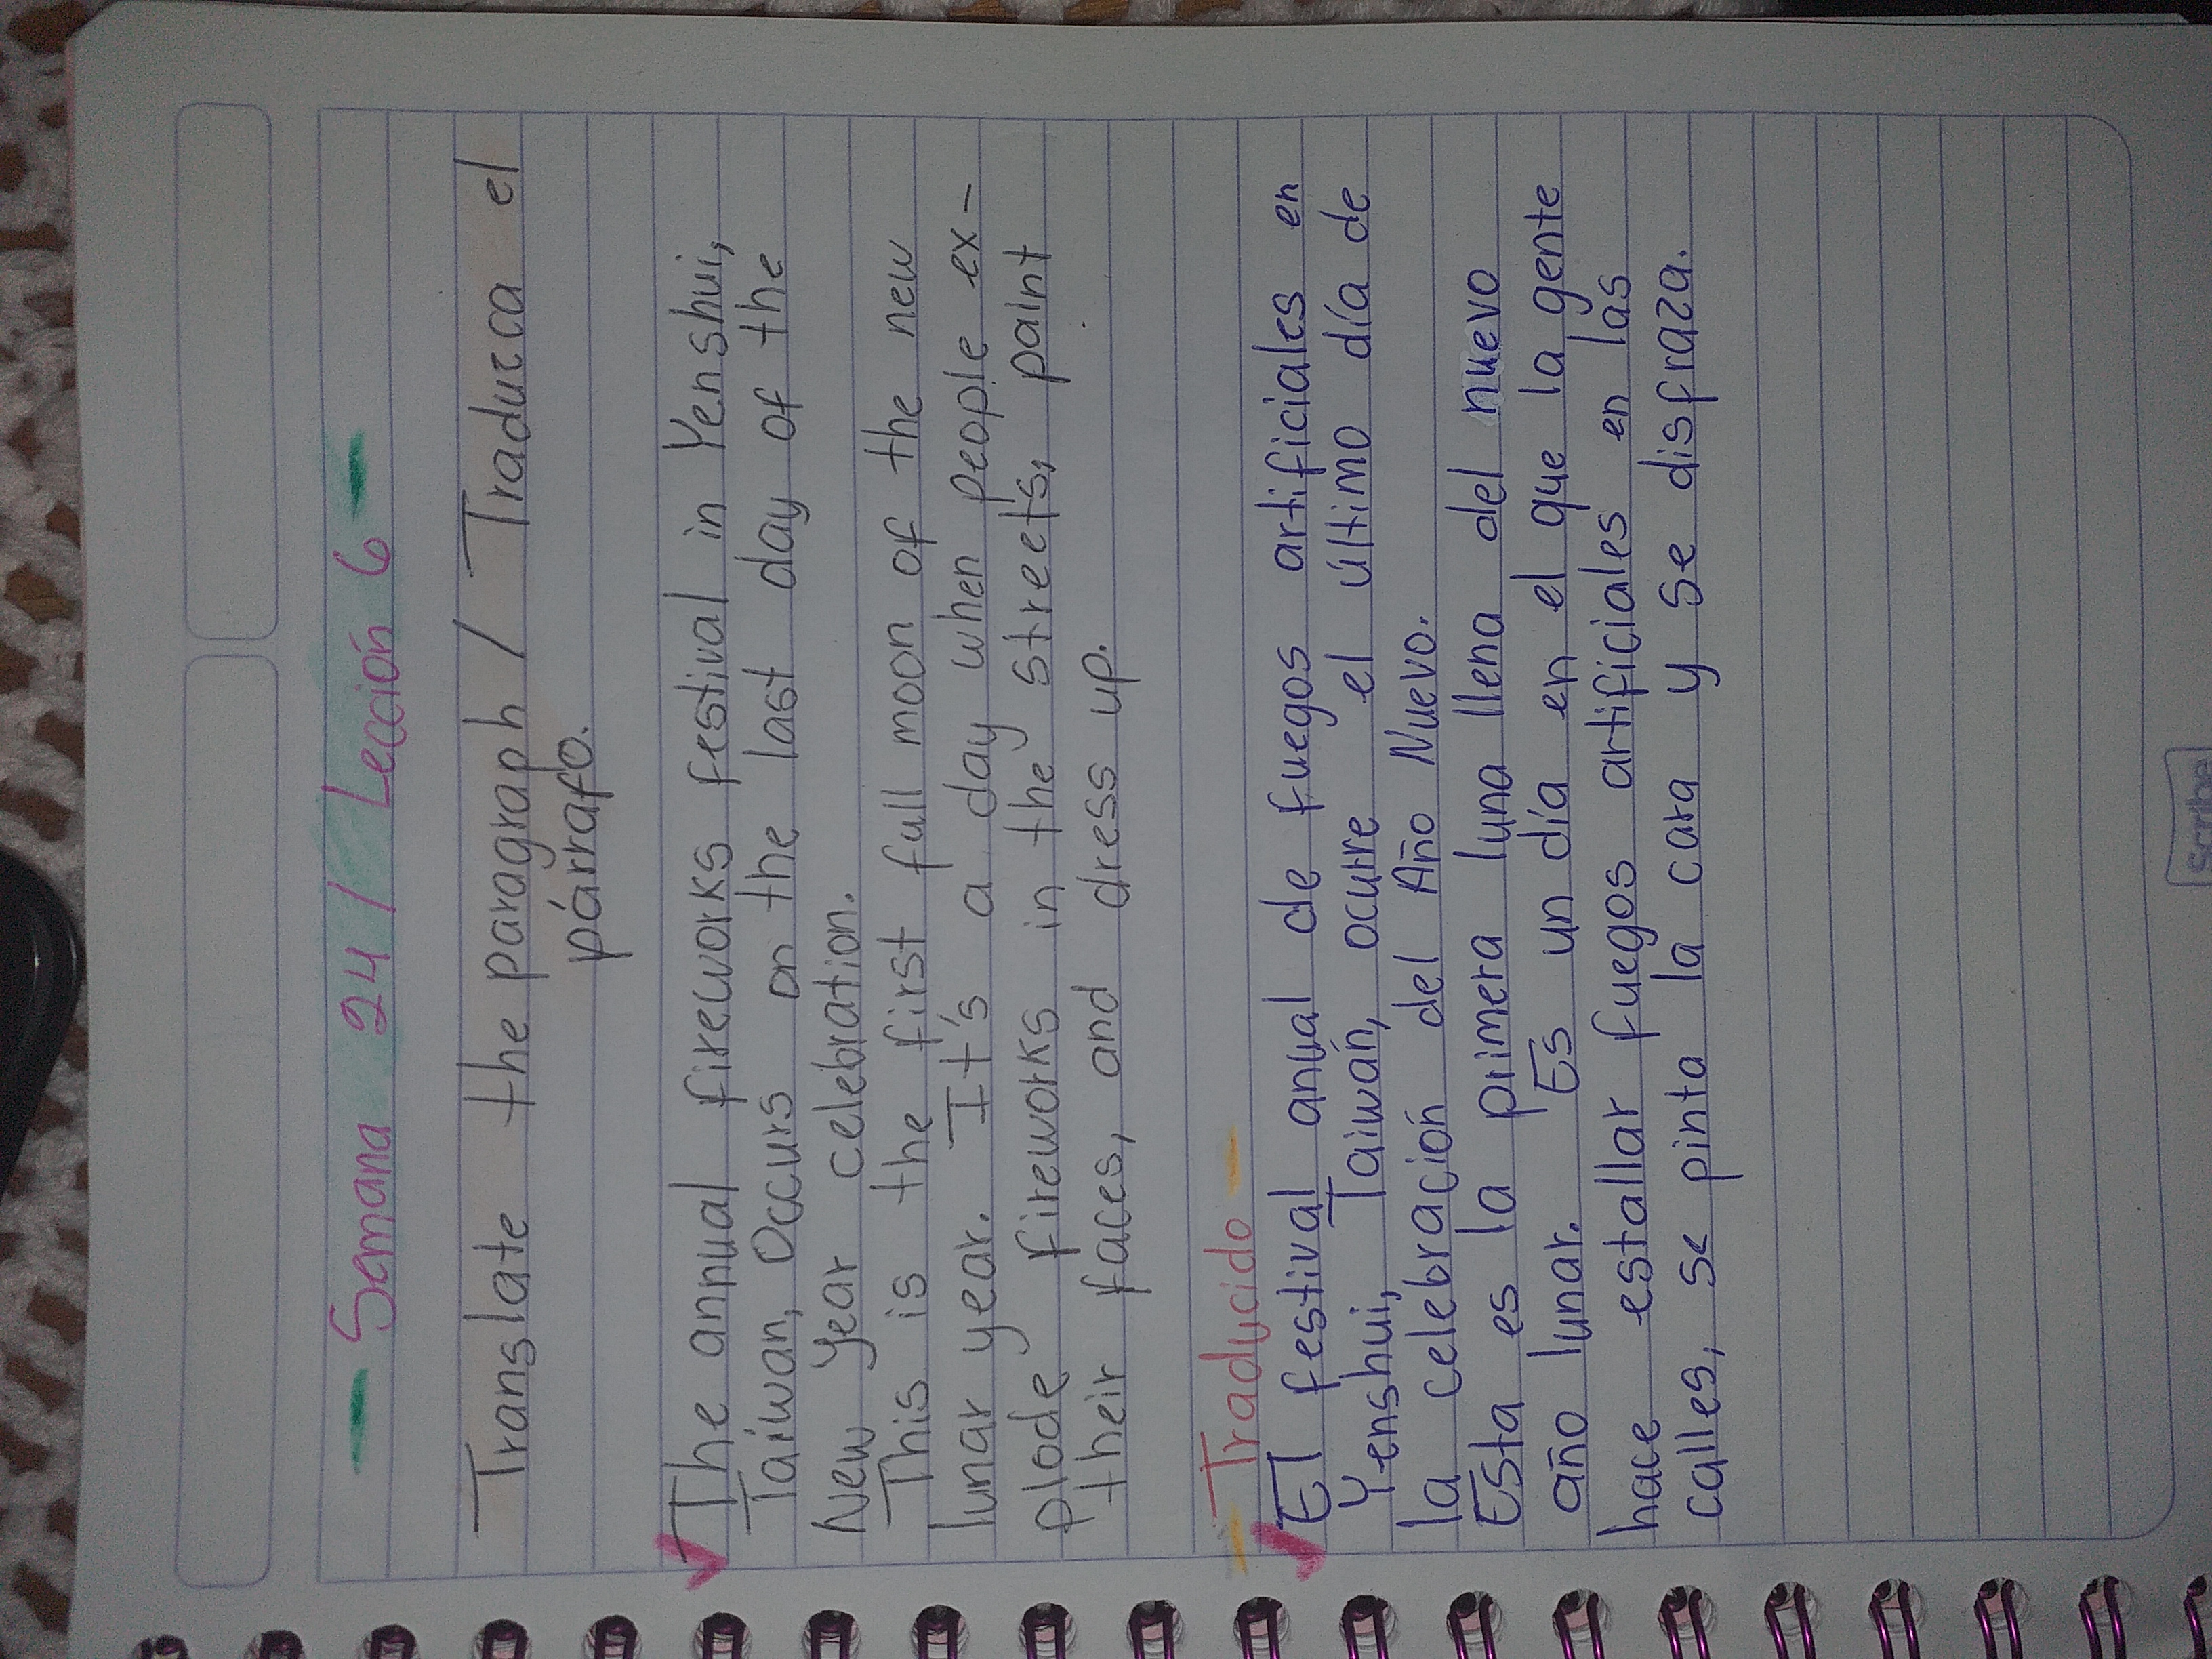 Semana 24 / Lección 6
Translate the paragraph / Traduzca el
párrafo.
The annual fireworks festival in Yenshui,
Taiwan, occurs on the last day of the
New Year celebration.
This is the first full moon of the new
lunar year. It's a day when people ex-
plode fireworks in the streets, paint
their faces, and dress up.
Traducido
El festival anual de fuegos artificiales en
Yenshui, Taiwán, ocurre el último día de
la celebración del Año Nuevo.
Esta es la primera luna llena del nuevo
año lunar. Es un día en el que la gente
hace estallar fuegos artificiales en las
calles, se pinta la cara y se disfraza.
Scribe